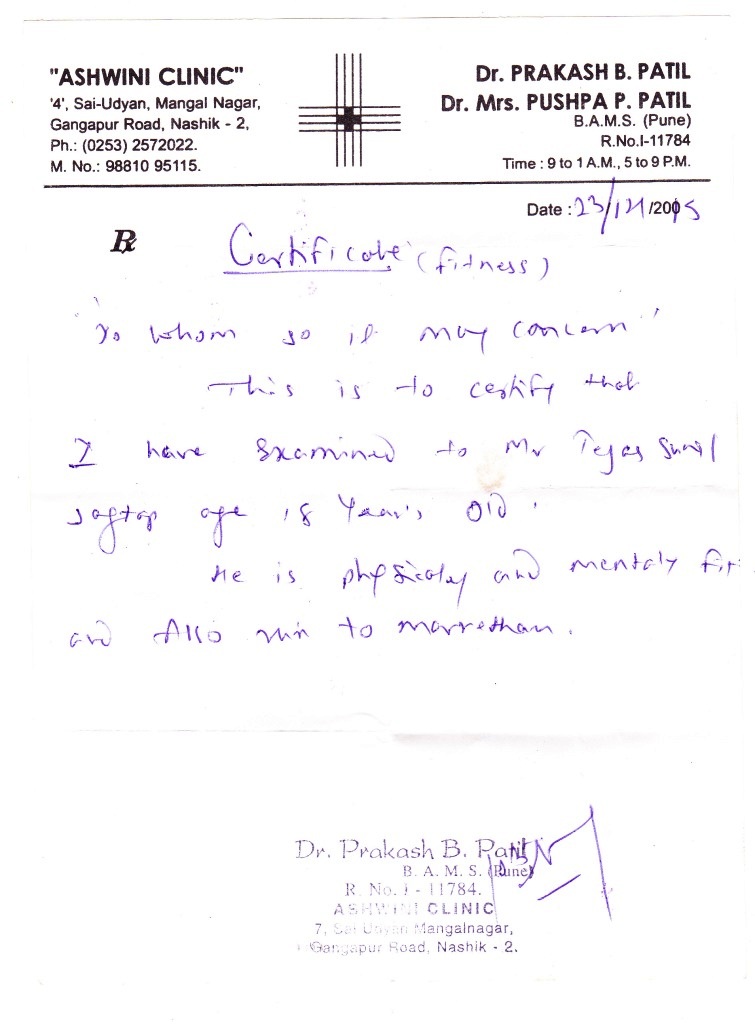 "ASHWINI CLINIC"
'4', Sai-Udyan, Mangal Nagar,
Gangapur Road, Nashik - 2,
Ph.: (0253) 2572022.
M. No.: 98810 95115.
Dr. PRAKASH B. PATIL
Dr. Mrs. PUSHPA P. PATIL
B.A.M.S. (Pune)
R.No.I-11784
Time : 9 to 1 A.M., 5 to 9 P.M.
Date : 23/12/2015
Rx
Certificate (fitness)
"To whom so it may concern"
This is to certify that
I have examined to Mr Tejas Sunil
Jagtap age 18 Year's Old.
He is physicaly and mentaly fit
and Also run to marrethan.
Dr. Prakash B. Patil
B. A. M. S. (Pune)
R. No. I - 11784.
ASHWINI CLINIC
7, Sai Udyan Mangalnagar,
Gangapur Road, Nashik - 2.